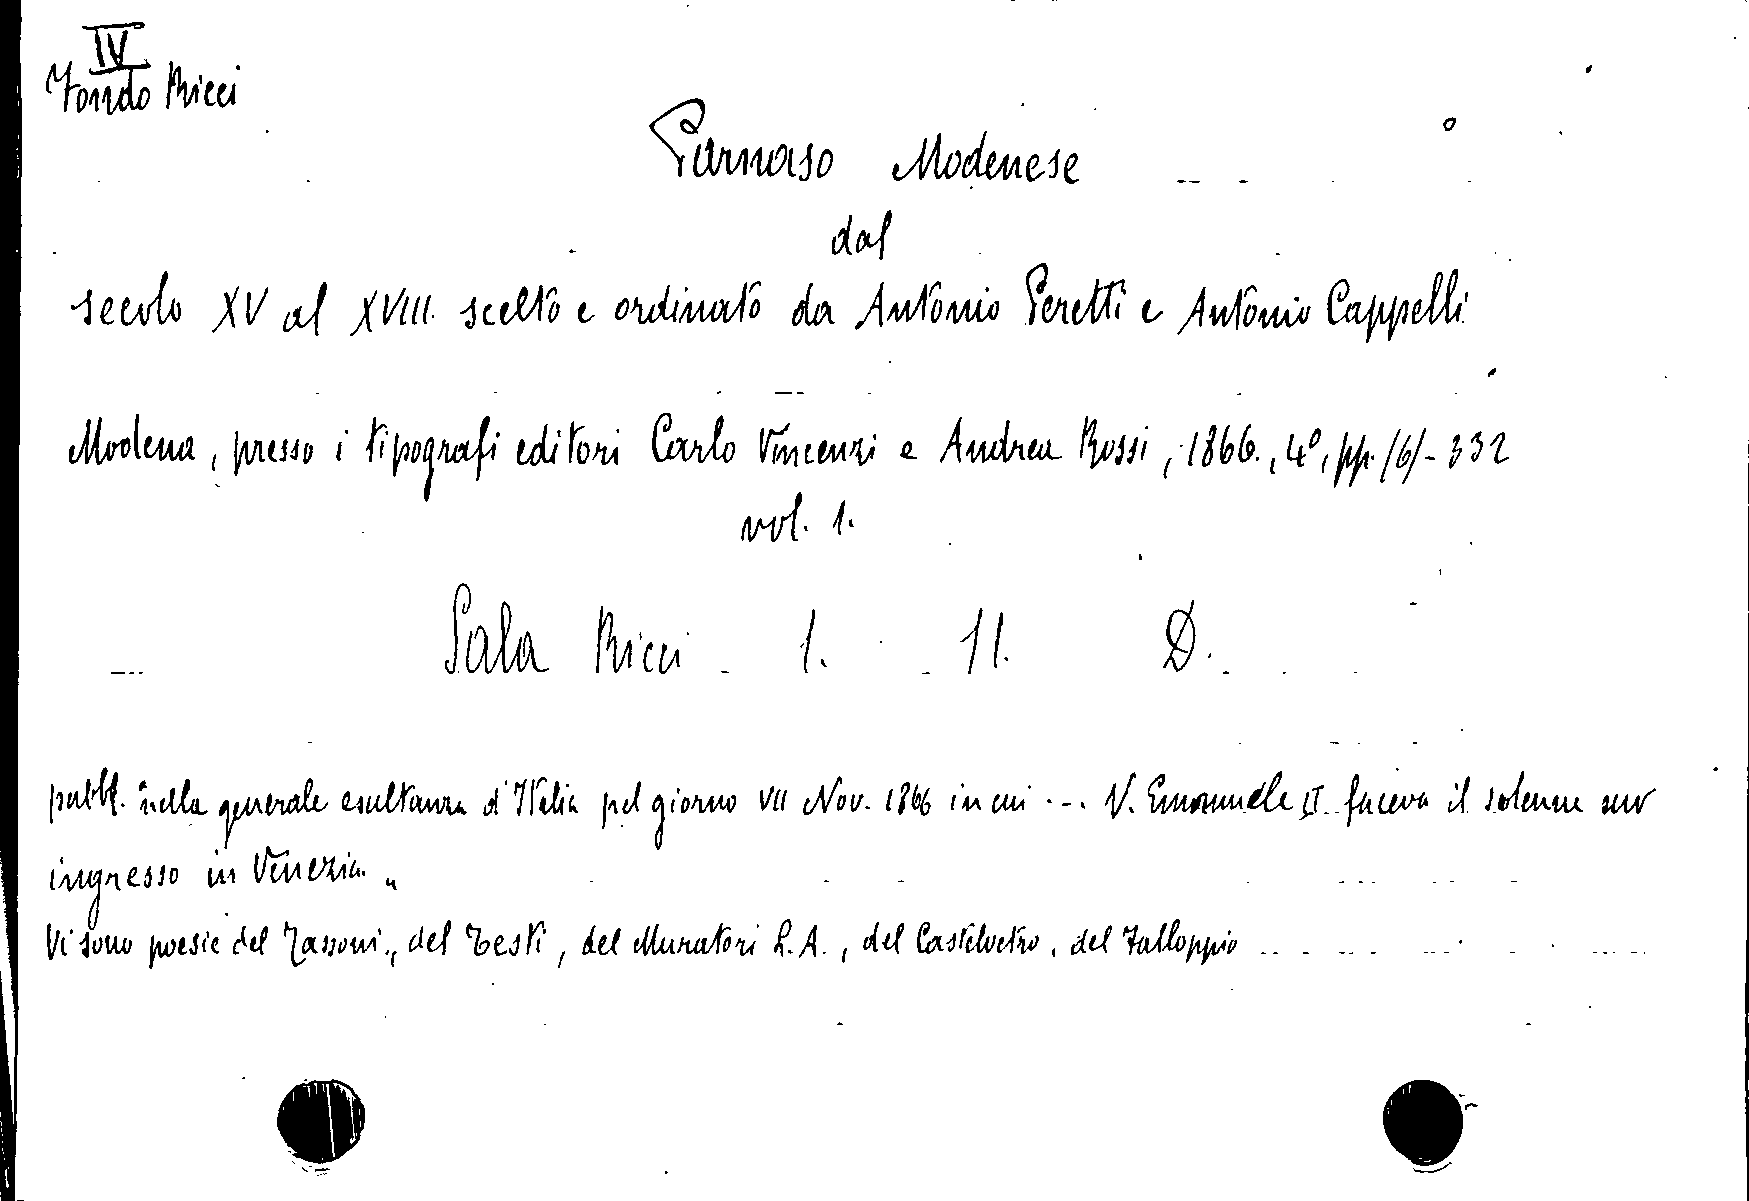 IV
Fondo Ricci
Parnaso Modenese
dal
secolo XV al XVIII. scelto e ordinato da Antonio Peretti e Antonio Cappelli
Modena, presso i tipografi editori Carlo Vincenzi e Andrea Rossi, 1866., 4º, pp. /6/-332
vol. 1.
Sala Ricci 1. 11. D.
pubbl. "nella generale esultanza d'Italia pel giorno VII Nov. 1866 in cui ... V. Emanuele II faceva il solenne suo
ingresso in Venezia „
Vi sono poesie del Tassoni, del Testi, del Muratori L.A., del Castelvetro, del Falloppio